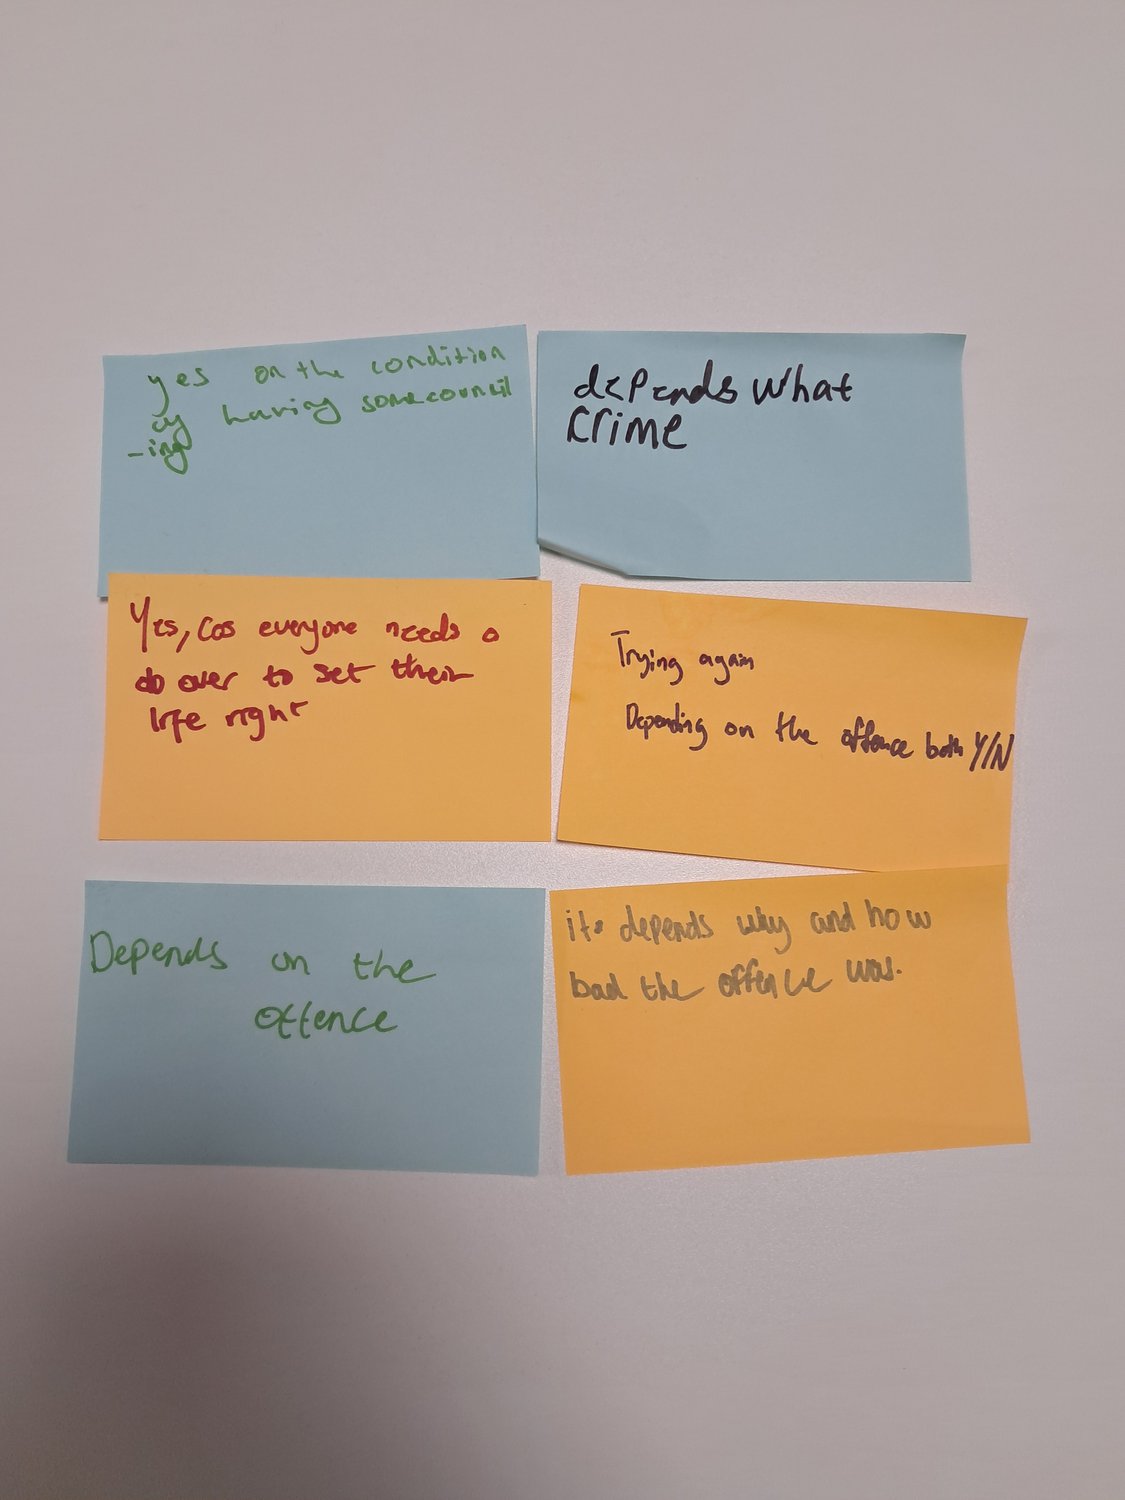 yes on the condition
having some council
-ing
depends what
crime
Yes, cos everyone needs a
do over to set their
life right
Trying again
Depending on the offence both Y/N
Depends on the
offence
its depends why and how
bad the offence was.